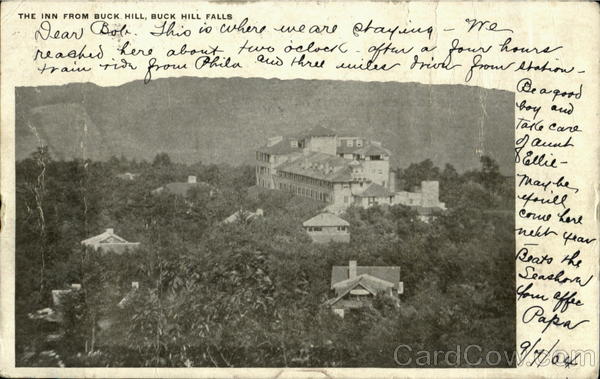 THE INN FROM BUCK HILL, BUCK HILL FALLS
Dear Bob. This is where we are staying - We
reached here about two o'clock - after a four hours
train ride from Phila and three miles drive from station -
Be a good
boy and
take care
of aunt
& Ellie -
Maybe
you'll
come here
next year
- Beats the
Seashore
Your affec
Papa
9/7/04
CardCow.com